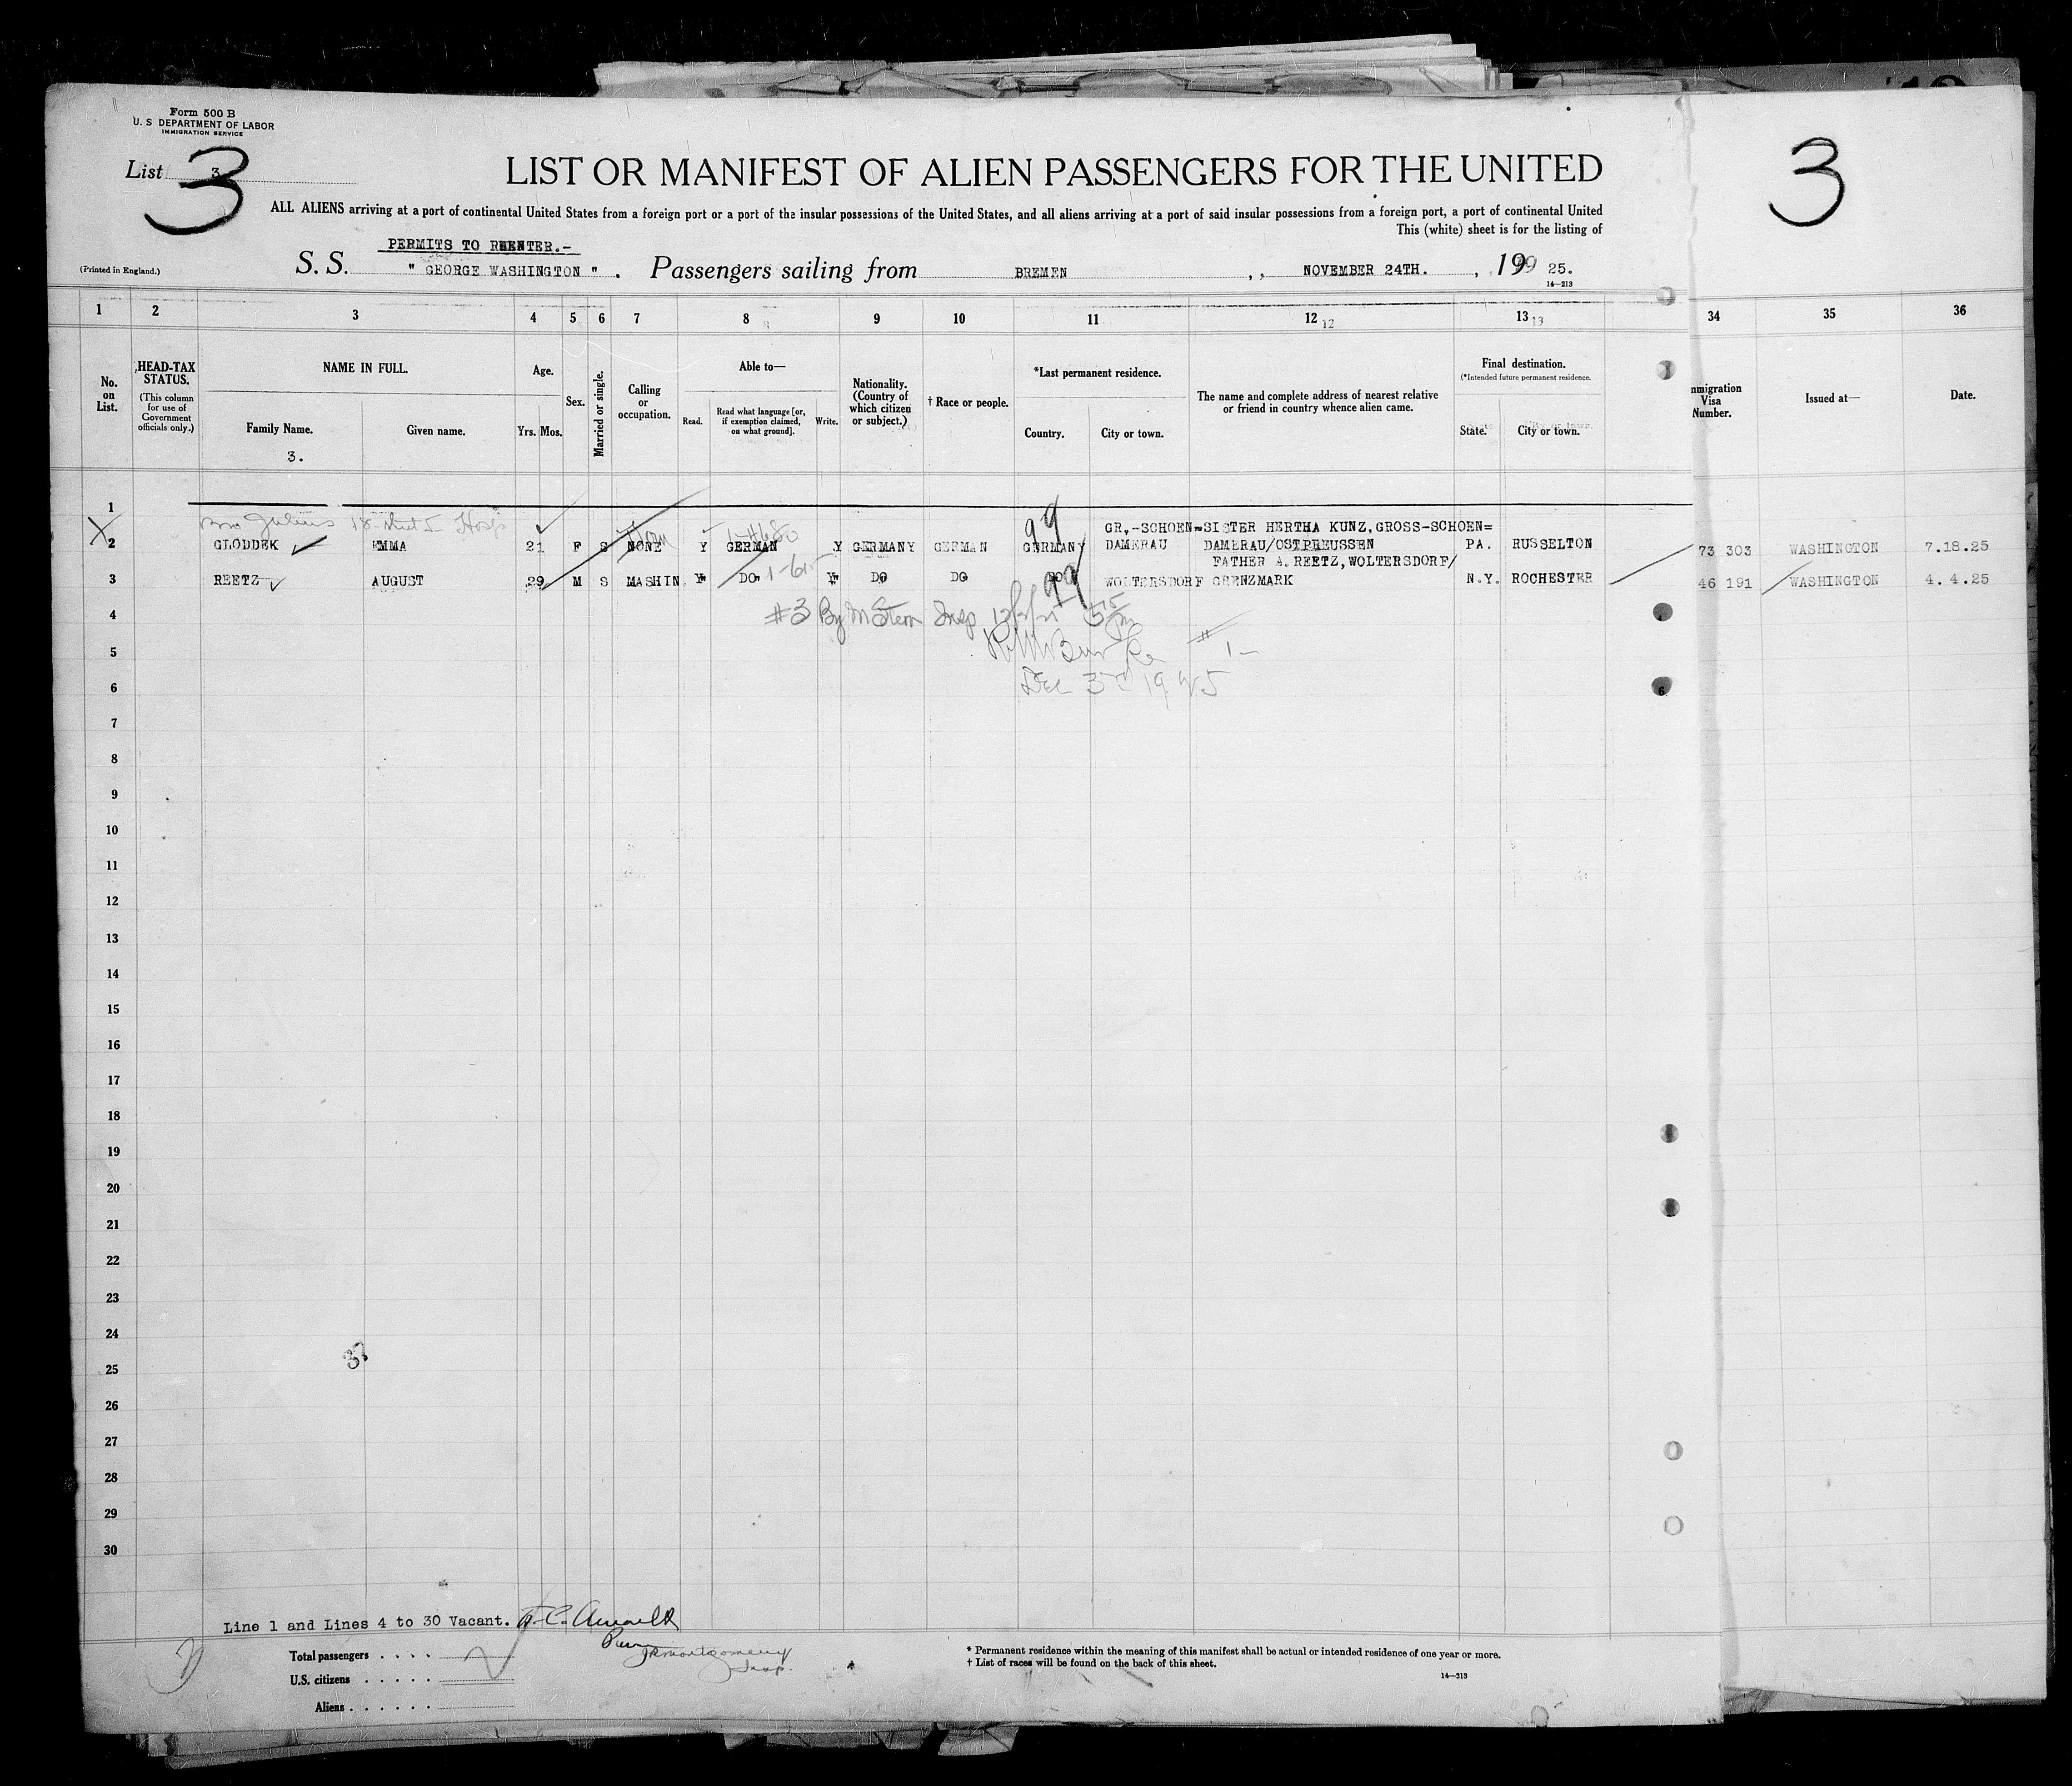 Form 500 B
U. S DEPARTMENT OF LABOR
IMMIGRATION SERVICE
List 3
3
3
LIST OR MANIFEST OF ALIEN PASSENGERS FOR THE UNITED
ALL ALIENS arriving at a port of continental United States from a foreign port or a port of the insular possessions of the United States, and all aliens arriving at a port of said insular possessions from a foreign port, a port of continental United
This (white) sheet is for the listing of
PERMITS TO REENTER.-
(Printed in England.)
S. S. " GEORGE WASHINGTON " . Passengers sailing from BREMEN , , NOVEMBER 24TH. , 19 25.
14—213
1 2 3 4 5 6 7 8 9 10 11 12 12 13 13 34 35 36
No. on List.
HEAD-TAX STATUS.
(This column for use of Government officials only.)
NAME IN FULL.
Family Name.
Given name.
3.
Age.
Yrs. Mos.
Sex.
Married or single.
Calling or occupation.
Able to—
Read.
Read what language [or, if exemption claimed, on what ground].
Write.
Nationality. (Country of which citizen or subject.)
† Race or people.
*Last permanent residence.
Country.
City or town.
The name and complete address of nearest relative or friend in country whence alien came.
Final destination.
(*Intended future permanent residence.
State.
City or town.
mmigration Visa Number.
Issued at—
Date.
1
99 GR,-SCHOEN= SISTER HERTHA KUNZ,GROSS-SCHOEN=
2 GLODDEK EMMA 21 F S NONE Y GERMAN Y GERMANY GERMAN GERMANY DAMERAU DAMERAU/OSTPREUSSEN PA. RUSSELTON 73 303 WASHINGTON 7.18.25
FATHER A.REETZ,WOLTERSDORF/
3 REETZ AUGUST 29 M S MASHIN. Y" DO. Y" DO DO DO 99 WOLTERSDORF GRENZMARK N.Y. ROCHESTER 46 191 WASHINGTON 4. 4.25
4 #3 By M Stern Insp
5 RM Burke #1-
6 Dec 3d 1925
6
7
8
9
10
11
12
13
14
15
16
17
18
19
20
21
22
23
24
25
26
27
28
29
30
Line 1 and Lines 4 to 30 Vacant.
Total passengers . . . .
U.S. citizens . . . . .
Aliens . . . . . .
JR Montgomery
Insp.
* Permanent residence within the meaning of this manifest shall be actual or intended residence of one year or more.
† List of races will be found on the back of this sheet.
14—213